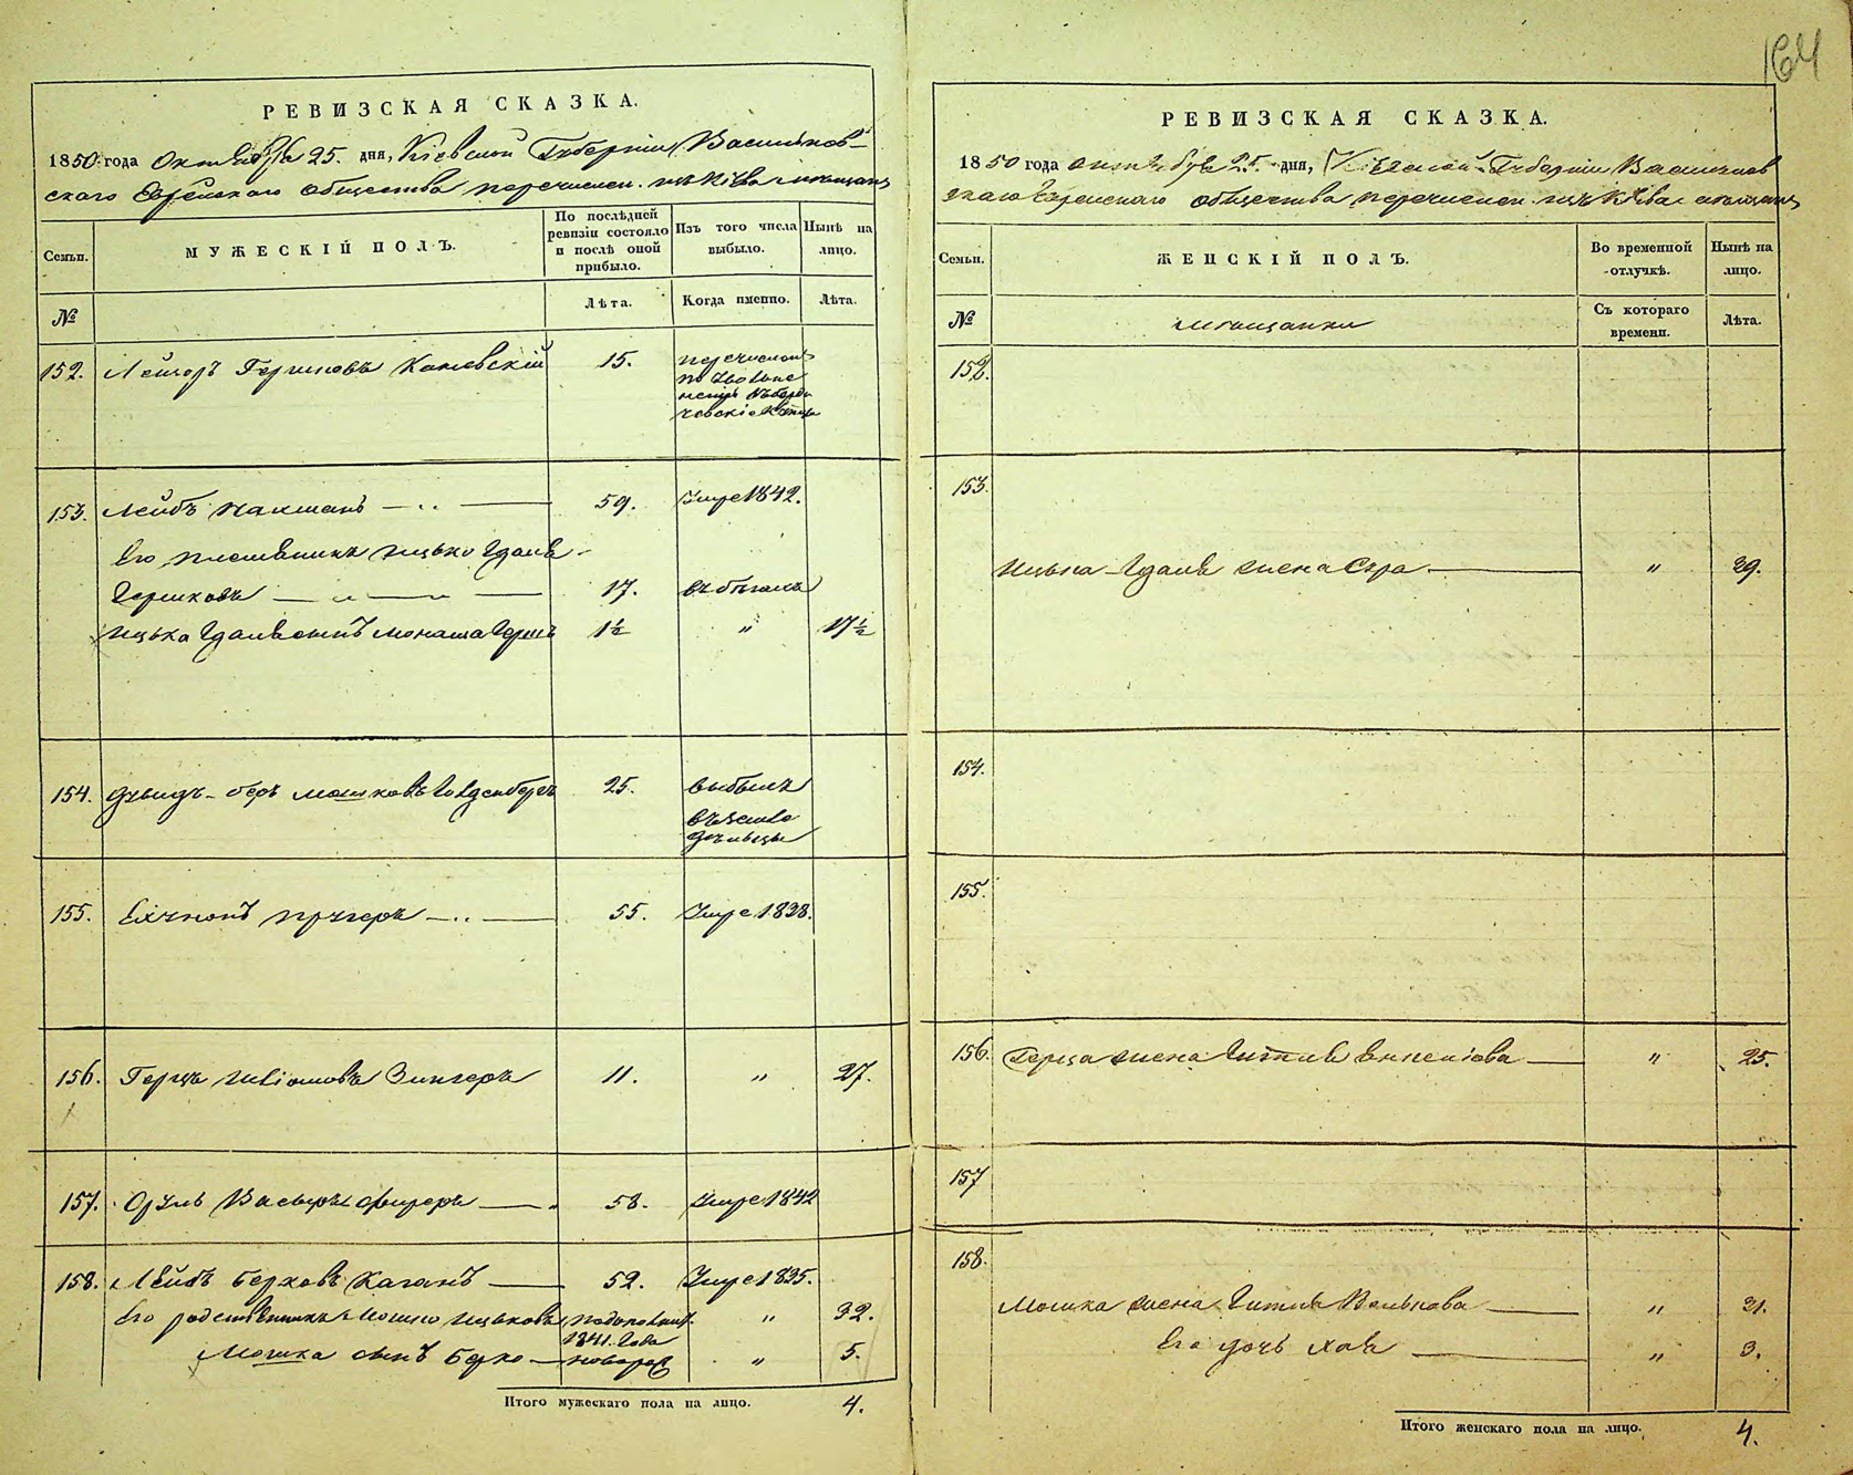 164
РЕВИЗСКАЯ СКАЗКА.
1850 года Октября 25. дня, Кіевской Губерніи Васильков-
скаго Еврейскаго общества перечислен. изъ Кіева мещанъ
Семьи.
МУЖЕСКІЙ ПОЛЪ.
По послѣдней ревизіи состояло и послѣ оной прибыло.
Изъ того числа выбыло.
Нынѣ на лицо.
№
Лѣта.
Когда именно.
Лѣта.
152. Лейзоръ Гершковъ Каневскій 15. перечислен
по
153. Лейбъ 59. Умре 1842.
Его племянникъ Ицько Гдаль
Гершковъ 17. въ бегахъ
Ицька Гдаля сынъ Монаша Гершъ 1½ " 17½
154. Дувидъ-беръ Мошковъ Голденбергъ 25. выбылъ
въ земле
дельцы
155. Ехунонъ 55. Умре 1838.
156. Герцъ Зингеръ 11. " 27.
157. Срулъ 58. Умре 1842
158. Лейбъ Берковъ Каганъ 52. Умре 1835.
Его родственникъ Мошко Ицьковъ по дополнит. " 32.
1841. Года
Мошка сынъ Берко новорож " 5.
Итого мужескаго пола на лицо. 4.
РЕВИЗСКАЯ СКАЗКА.
1850 года октября 25. дня, Кіевской Губерніи Васильков
скаго Еврейскаго общества перечислен. изъ Кіева мещанъ
Семьи.
ЖЕНСКІЙ ПОЛЪ.
Во временной отлучкѣ.
Нынѣ на лицо.
№
мещанки
Съ котораго времени.
Лѣта.
152.
153.
Ицька-Гдаля жена Сура " 39.
154.
155.
156. Герца жена Гитля " 25.
157
158.
Мошка жена Гитля Волькова " 31.
Его дочь Хая " 3.
Итого женскаго пола на лицо. 4.